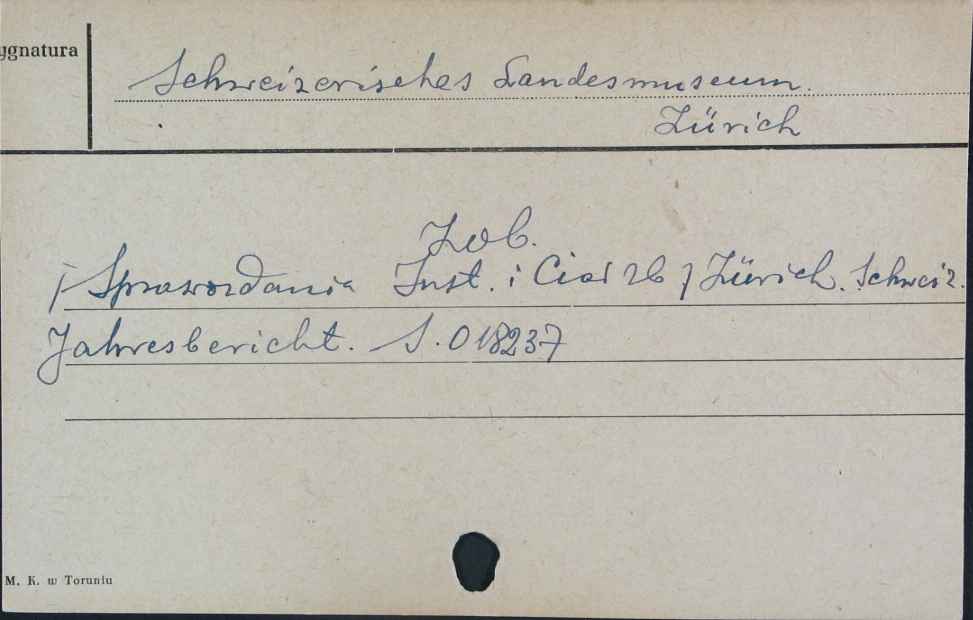 ygnatura
Schweizerisches Landesmuseum.
Zürich
Zob.
Sprawozdania Inst. i Ciał zb Zürich. Schweiz.
Jahresbericht. S. 018237
M. K. w Toruniu